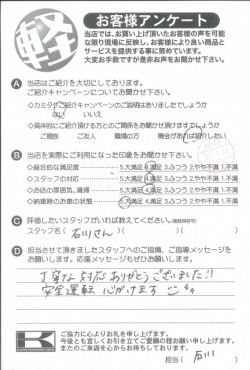 軽
お客様アンケート
当店では、お買い上げ頂いたお客様の声を可能
な限り現場に反映し、お客様により良い商品と
サービスを提供する事に努めています。
大変お手数ですが是非お声をお聞かせ下さい。
A 当店はご紹介を大切にしております。
ご紹介キャンペーンについてお聞かせ下さい。
◇カミタケご紹介キャンペーンのご説明はありましたでしょうか
はい いいえ
◇具体的にご紹介頂ける方とのご関係をお聞かせ頂けますでしょうか
ご親族 ご友人 職場の方 機会があれば紹介したい
B 当店を実際にご利用になった印象をお聞かせ下さい。
◇総合的な満足度 5.大満足 4.満足 3.ふつう 2.やや不満 1.不満
◇スタッフの対応 5.大満足 4.満足 3.ふつう 2.やや不満 1.不満
◇お店の雰囲気、清掃 5.大満足 4.満足 3.ふつう 2.やや不満 1.不満
◇納車時のお車の状態 5.大満足 4.満足 3.ふつう 2.やや不満 1.不満
C 評価したいスタッフがいれば教えてください。
スタッフ名( 石川さん )
D 担当させて頂きましたスタッフへのご指摘、ご指導メッセージを
お願いします。応援メッセージもぜひお願いします。
丁寧な対応ありがとうございました!!
安全運転 心がけます
K
ご協力に心よりお礼を申し上げます。
今後とも宜しくお引き立てご愛顧の程お願い申し上げます。
またのご来店を心からお待ちしております。
担当( 石川 )